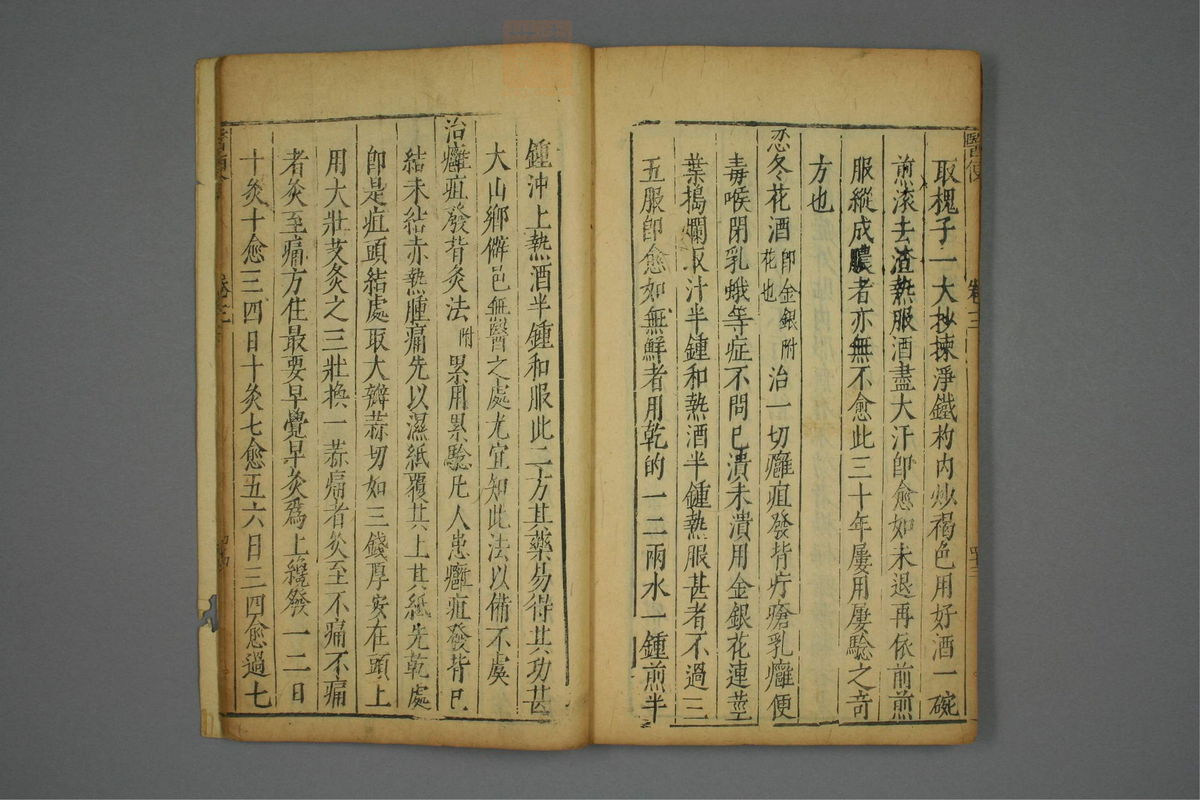 醫便
卷三
四十三
取槐子一大抄揀淨鐵杓內炒褐色用好酒一碗
煎滾去渣熱服酒盡大汗卽愈如未退再依前煎
服縱成膿者亦無不愈此三十年屢用屢驗之奇
方也
忍冬花酒卽金銀花也附治一切癰疽發背疔瘡乳癰便
毒喉閉乳蛾等症不問已潰未潰用金銀花連莖
葉搗爛取汁半鍾和熱酒半鍾熱服甚者不過三
五服卽愈如無鮮者用乾的一二兩水一鍾煎半
鍾沖上熱酒半鍾和服此二方其藥易得其功甚
大山鄉僻邑無醫之處尤宜知此法以備不虞
治癰疽發背灸法附累用累驗凡人患癰疽發背已
結未結赤熱腫痛先以濕紙覆其上其紙先乾處
卽是疽頭結處取大瓣蒜切如三錢厚安在頭上
用大壯艾灸之三壯換一蒜痛者灸至不痛不痛
者灸至痛方住最要早覺早灸爲上纔發一二日
十灸十愈三四日十灸七愈五六日三四愈過七
卷三